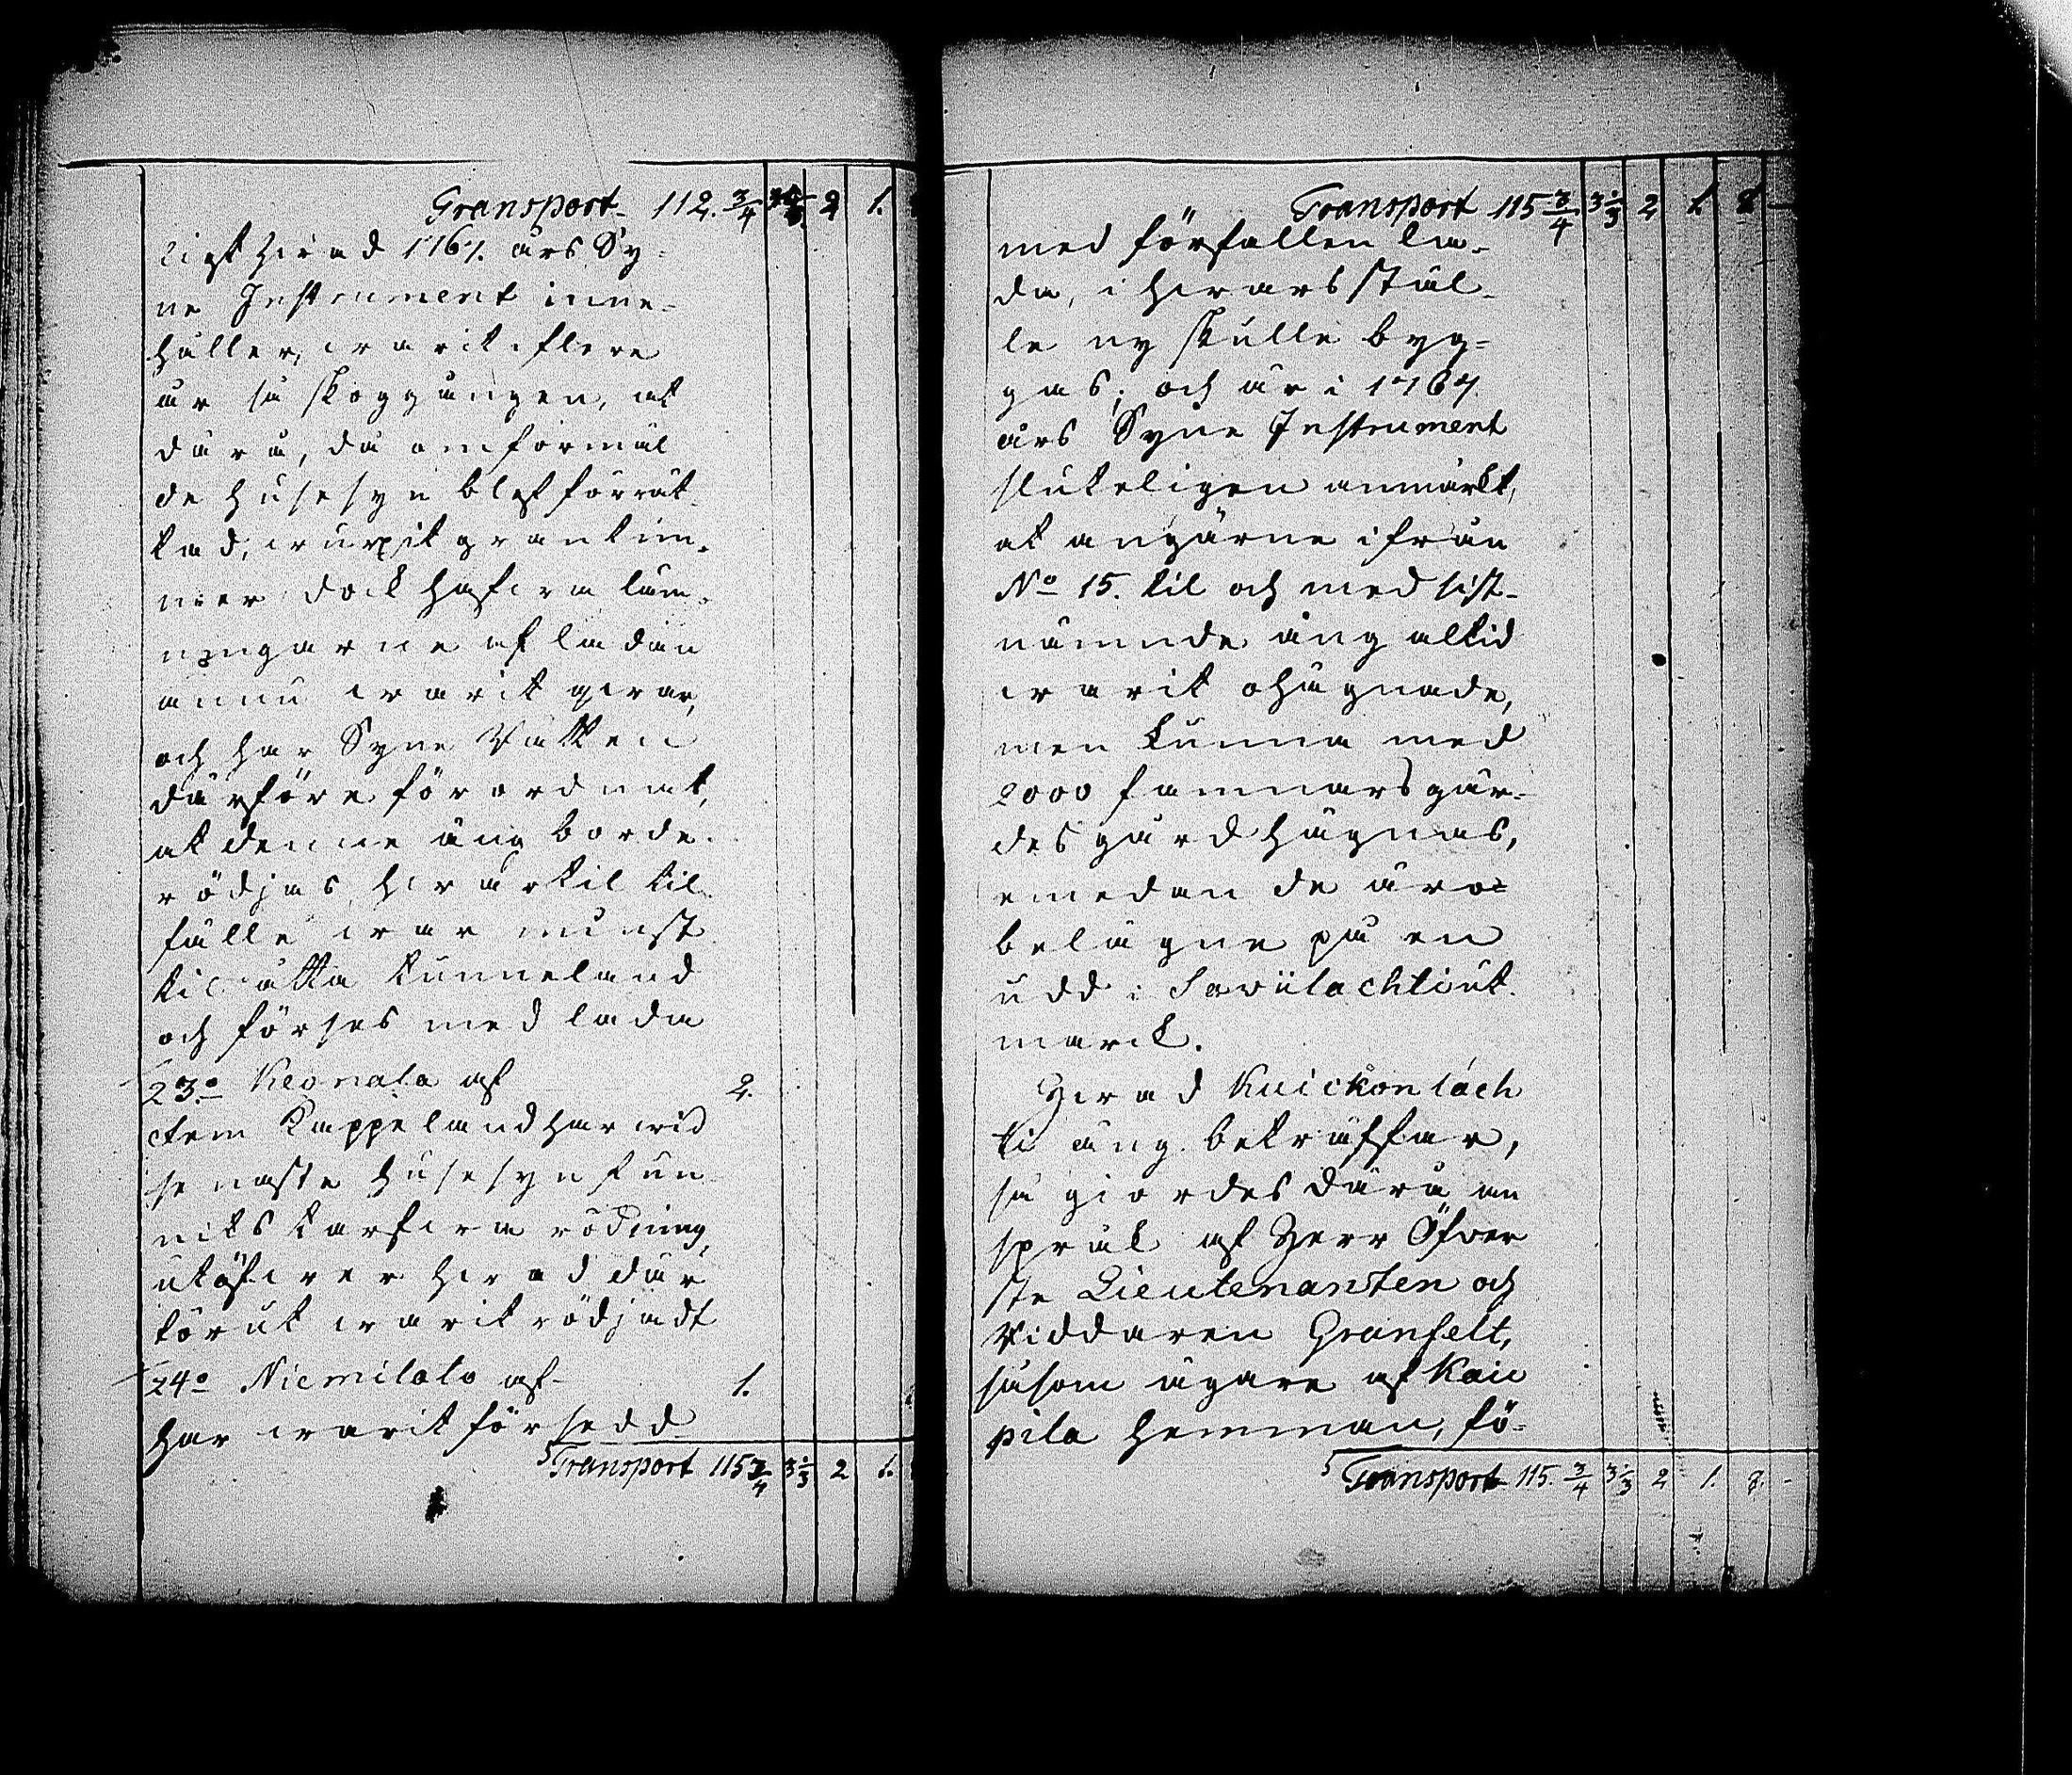 Transport 112. 3/4 2 1.
ligt hvad 1767. års Sy-
ne Instrument inne-
håller, warit i flere
år så skoggången, at
därå, då omförmäl
de husesyn blef förrät
tad, wuxit gran tim-
mer dock hafwa läm-
ningarne af ladan
ännu warit qwar,
och har Syne Rätten
därföre förordnat,
at denne äng borde
rödjas, hwartil til
fälle war minst
til åtta Tunneland
och förses med lada
23:o Keonala af 2.
fem Kappeland har wid
senaste husesyn fun
nits tarfwa rödning,
utöfwer hwad där
förut warit rödjadt
24:o Niemilalo af 1.
har warit försedd
Transport 115 3/4 3 1/3 2 1.
Transport 115 3/4 3 1/3 2 1. 8 —
med förfallen la-
da, i hwars stäl-
le ny skulle byg-
gas; och är i 1767
års Syne Instrument
sluteligen anmärkt,
at ängarne ifrån
No 15. til och med sist-
nämnde äng altid
warit ohägnade,
men kunna med
2000 famnars gär-
desgård hägnas,
emedan de äro
belägne på en
udd i Sawilachti ut-
mark.
Hwad Kuickonlach
ti äng beträffar,
så giordes därå an
språk af Herr Öfwer
ste Lieutenanten och
Riddaren Granfelt,
såsom ägare af Kau
pila hemman, fö-
Transport 115. 3/4 3 1/3 2 1. 8. -